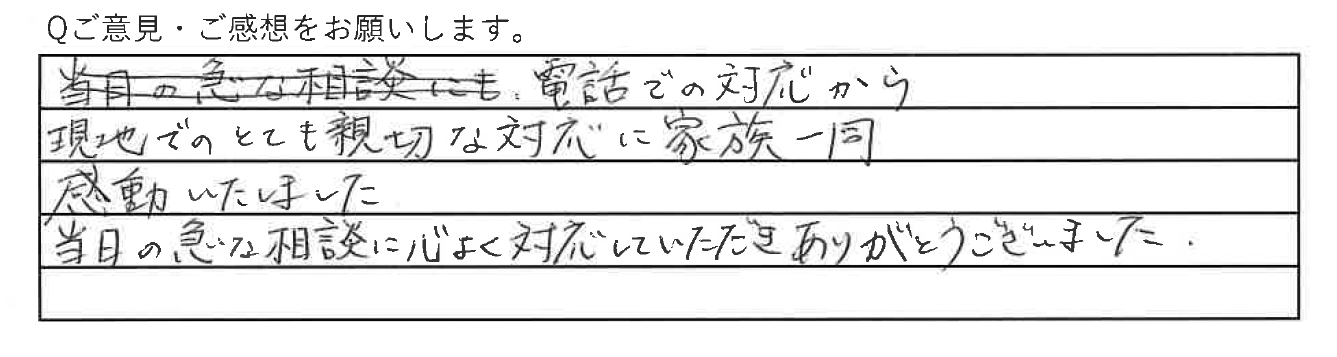 Qご意見・ご感想をお願いします。
当日の急な相談にも、電話での対応から
現地でのとても親切な対応に家族一同
感動いたしました
当日の急な相談に心よく対応していただきありがとうございました.